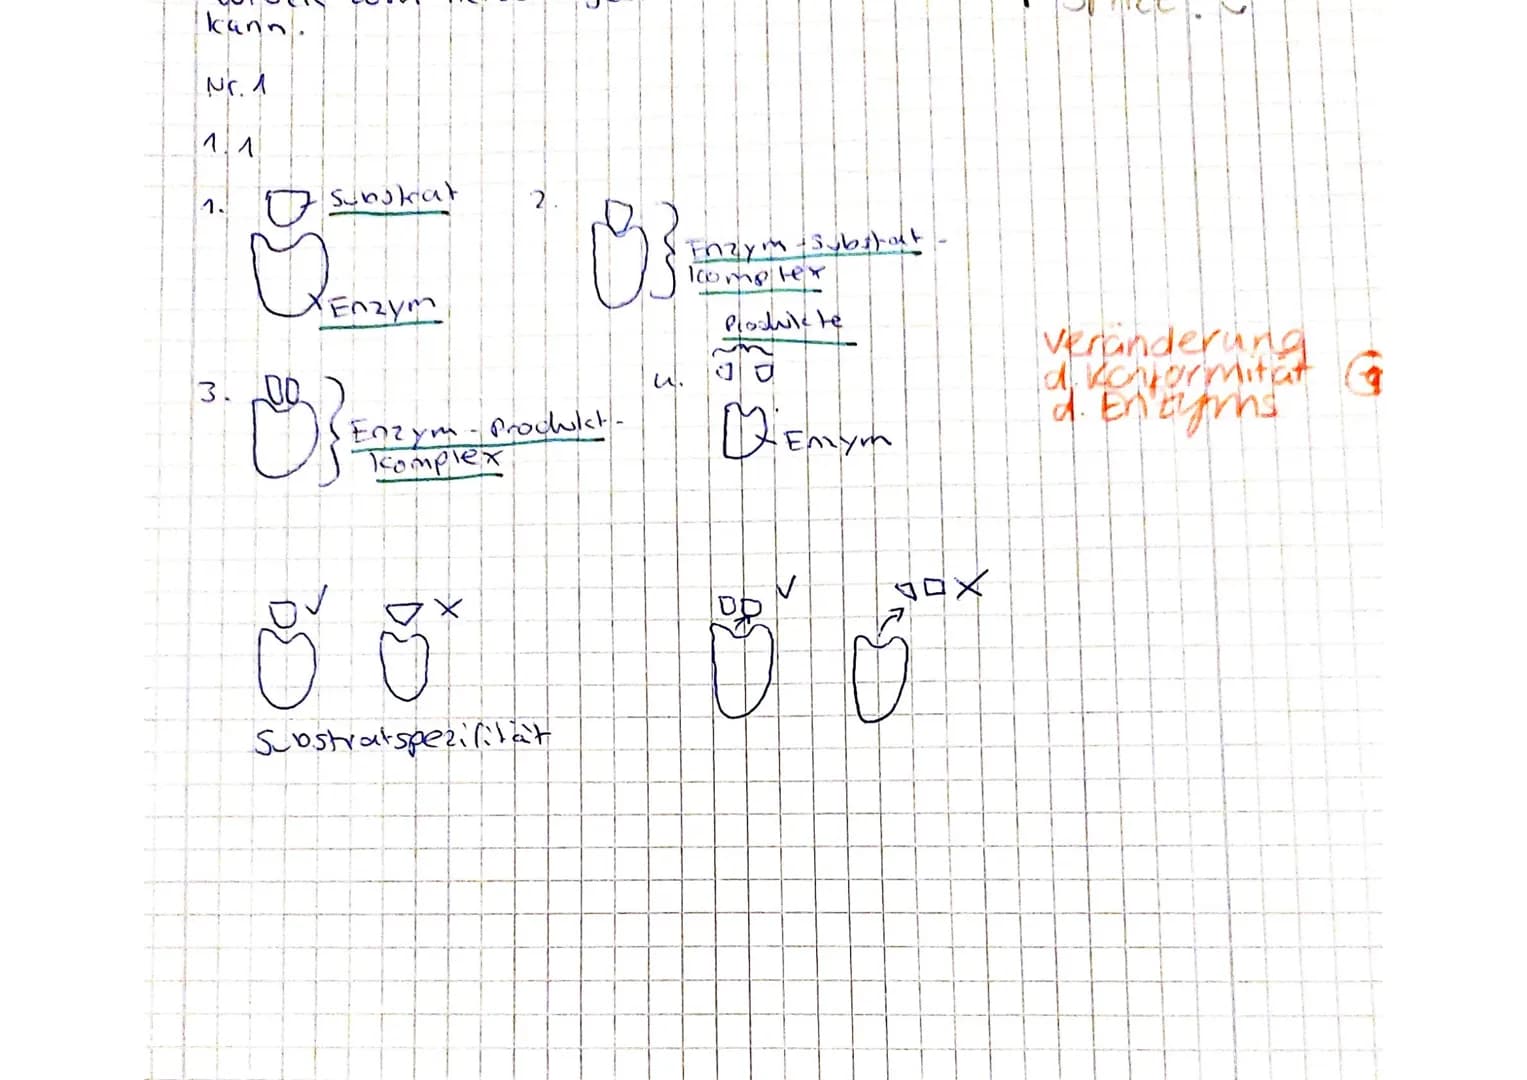 kann.
Nr. 1
1.1
1. Substrat
Enzym
2.
Enzym-Substrat-
komplex
3.
Enzym-Produkt-
komplex
4.
Produkte
Enzym
Veränderung
d. Konformität
d. Enzyms
Substratspezifität